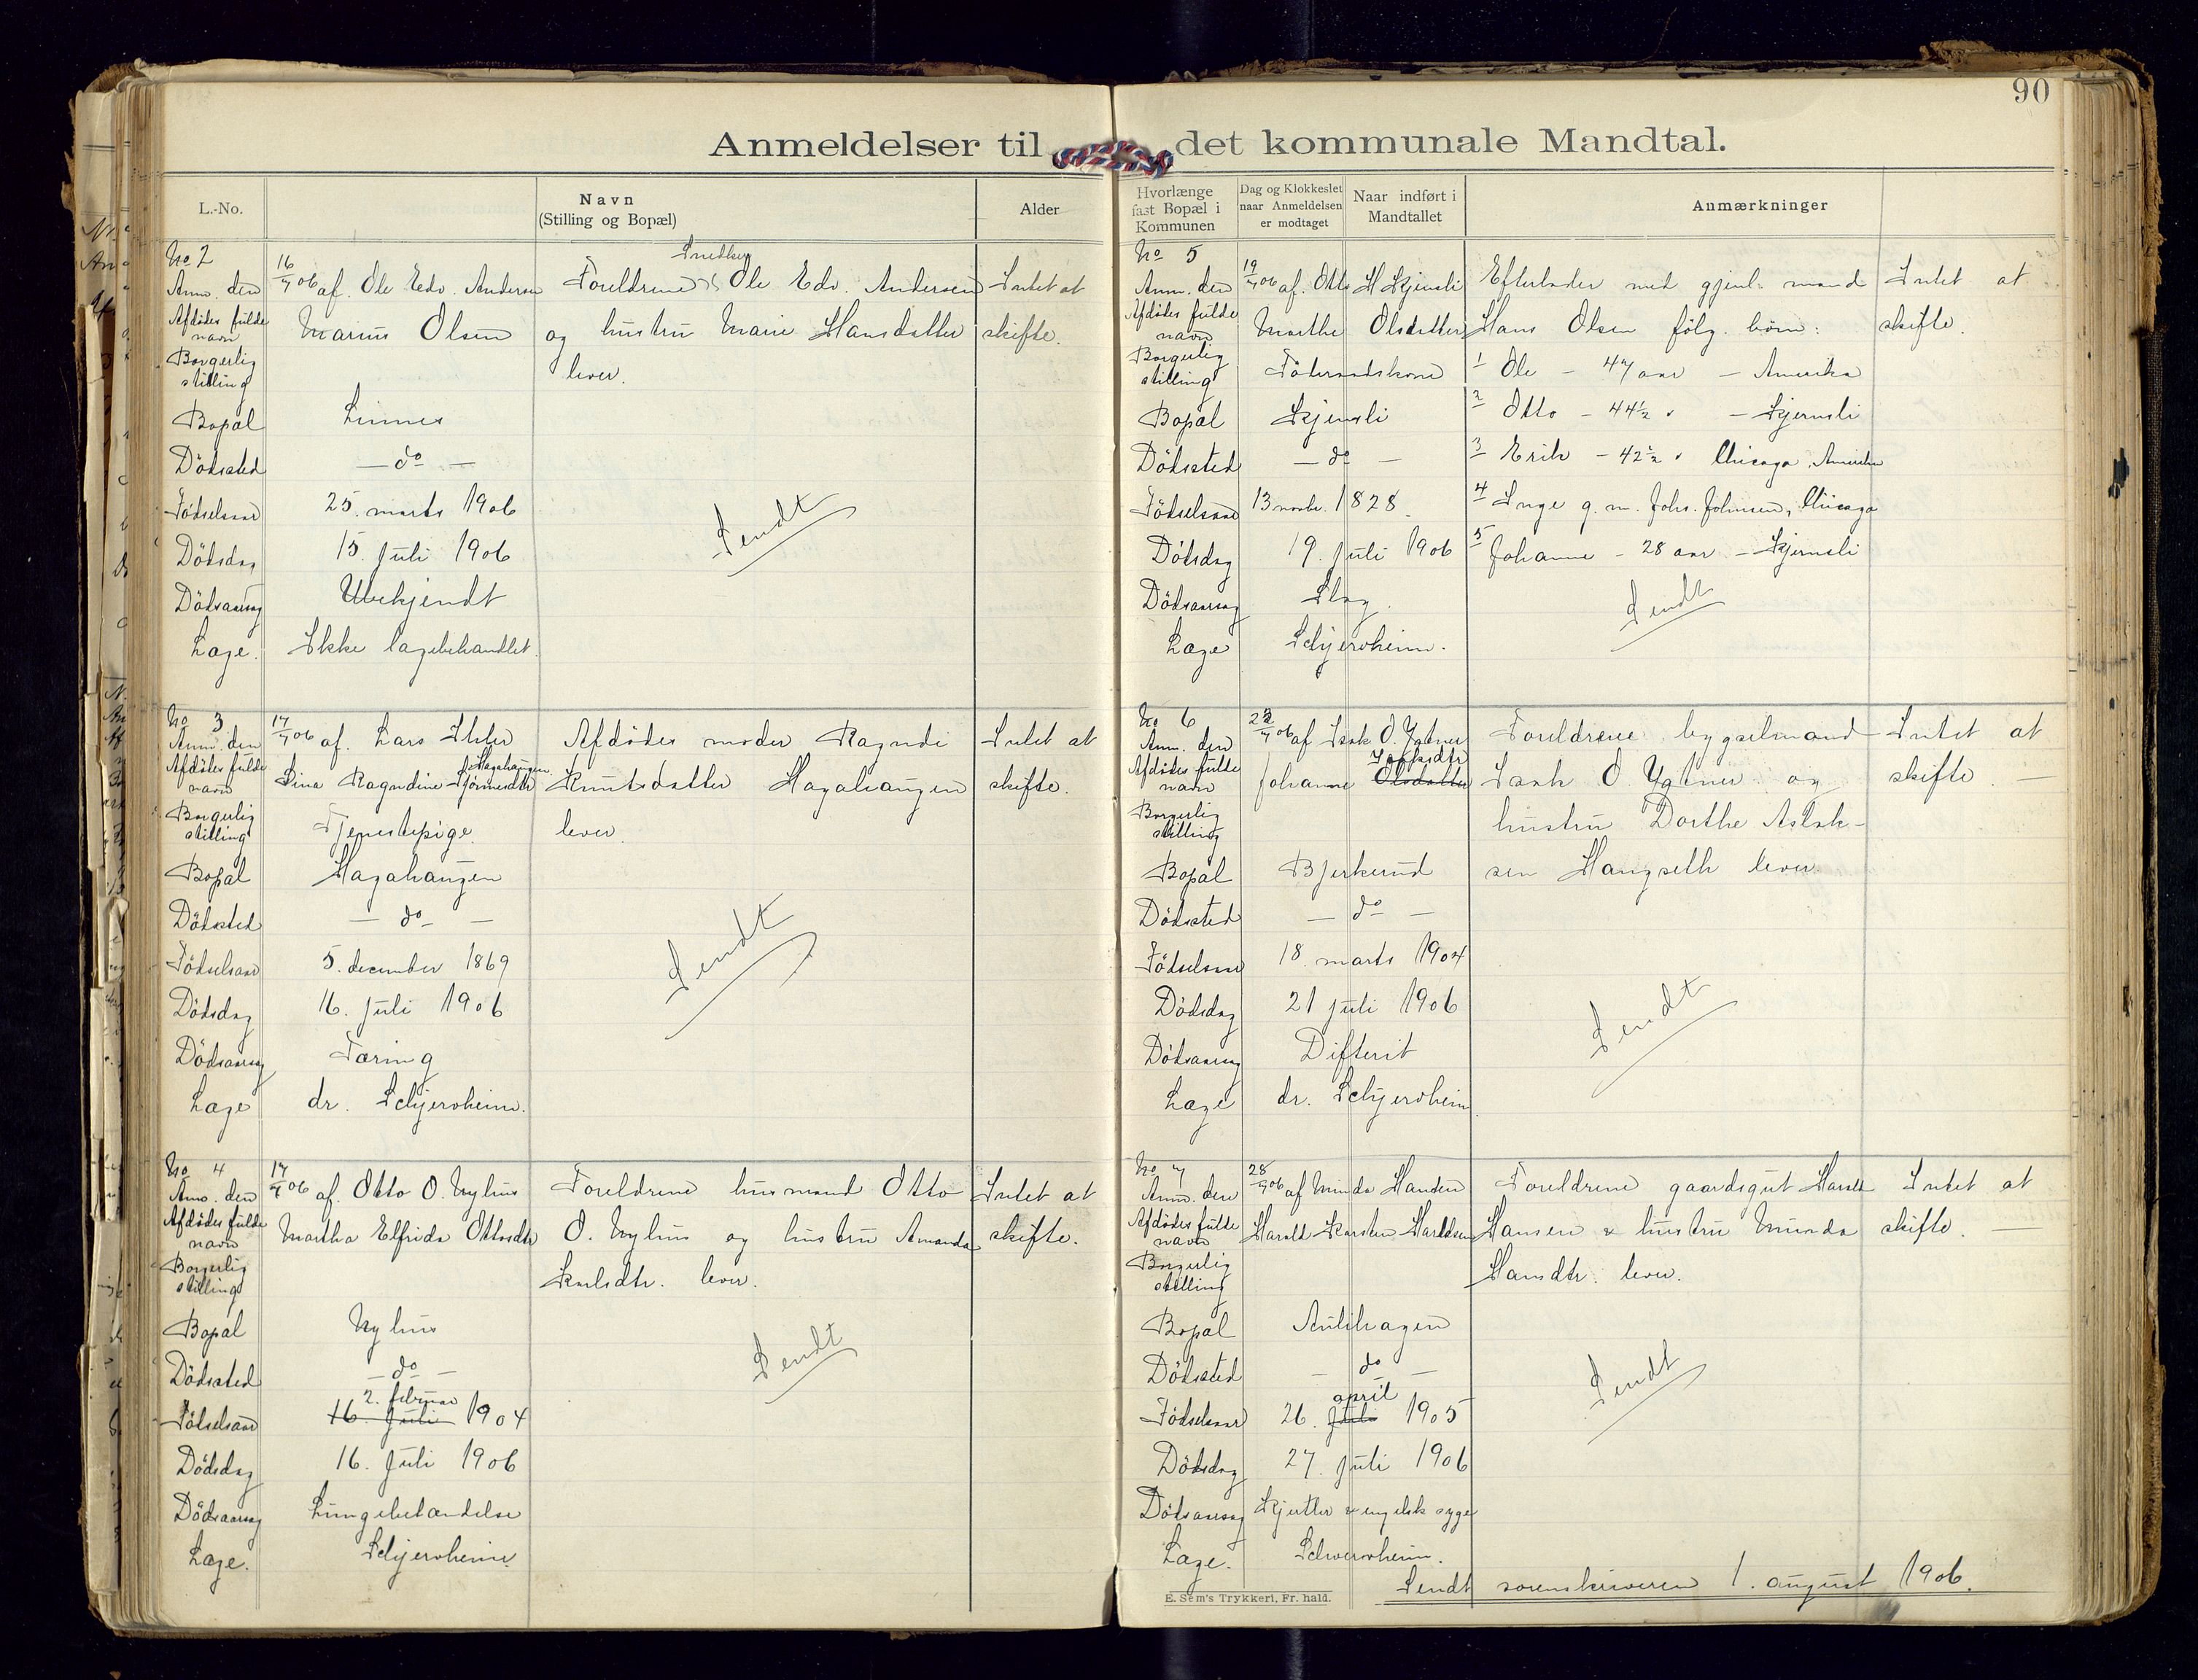 90
Anmeldelser til det kommunale Mandtal.
L.-No.
Navn
(Stilling og Bopæl)
Alder
Hvorlænge
fast Bopæl i
Kommunen
Dag og Klokkeslet
naar Anmeldelsen
er modtaget
Naar indført i
Mandtallet
Anmærkninger
No 2
Anm. den 16/7 06 af. Ole Edv. Andersen
Afdødes fulde navn Marius Olsen
Borgerlig stilling
Bopæl Linnes
Dödssted — do —
Födselsaar 25. marts 1906
Dödsdag 15. juli 1906
Dödsaarsag Ubekjendt
Læge. Ikke lægebehandlet.
Foreldrene Ole Edv. Andersen
og hustru Marie Hansdatter
lever.
Sendt
Intet at
skifte.
No 3
Anm. den 17/7 06 af. Lars Ihler
Afdödes fulde navn Lina Ragndine Hagahaugen
Borgerlig stilling Tjenestepige
Bopæl Hagahaugen
Dödssted — do —
Födselsaar 5. december 1869
Dödsdag 16. juli 1906
Dödsaarsag Tæring
Læge dr. Schjervheim.
Afdödes moder Ragndi
Knutsdatter Hagahaugen
lever.
Sendt
Intet at
skifte.
No 4
Anm. den 17/7 06 af. Otto O. Nyhus
Afdödes fulde navn Martha Elfrida Ottosdtr
Borgerlig stilling
Bopæl Nyhus
Dödssted — do —
2. februar
Födselsaar 16. Juli 1904
Dödsdag 16. Juli 1906
Dödsaarsag Lungebetændelse
Læge. Schjervheim.
Foreldrene husmand Otto
O. Nyhus og hustru Amanda
Karlsdtr. lever.
Sendt
Intet at
skifte.
No 5
Anm. den 19/7 06 af. Otto H Kjernsli
Afdödes fulde navn Marthe Olsdatter
Borgerlig stilling Föderaadskone
Bopæl Kjernsli
Dödssted — do —
Födselsaar 13 novbr. 1828.
Dödsdag 19. juli 1906
Dödsaarsag Slag.
Læge Schjervheim.
Efterlader med gjenl. mand
Hans Olsen følg. börn:
1 Ole — 47 aar — Amerika
2 Otto — 44½ " — Kjernsli
3 Erik — 42½ " Chicago, Amerika
4 Inge g. m. Johs. Johnsen, Chicago
5 Johanne — 28 aar — Kjernsli
Sendt
Intet at
skifte.
No 6
Anm. den 23/7 06 af Isak O. Ygtner
Isaksdtr
Afdödes fulde navn Johanne Olsdatter
Borgerlig stilling
Bopæl Bjerkerud
Dödssted — do —
Födselsaar 18. marts 1904
Dödsdag 21 juli 1906
Dödsaarsag Difterit
Læge dr. Schjervheim.
Foreldrene bygselmand
Isak O. Ygtner og
hustru Dorthe Aslak-
sen Haugseth lever.
Sendt
Intet at
skifte. —
No 7
Anm. den 28/7 06 af Minda Hansen
Afdödes fulde navn Harald Karsten Haraldsen
Borgerlig stilling
Bopæl Aulihagen
Dödssted — do —
april
Födselsaar 26. Juli 1905
Dödsdag 27. juli 1906
Dödsaarsag Kjertler & engelsk syge
Læge. Schjervheim.
Foreldrene gaardsgut Harald
Hansen & hustru Minda
Hansdtr. lever.
Sendt
Intet at
skifte. —
Sendt sorenskriveren 1. august 1906.
E. Sem's Trykkeri, Fr. hald.